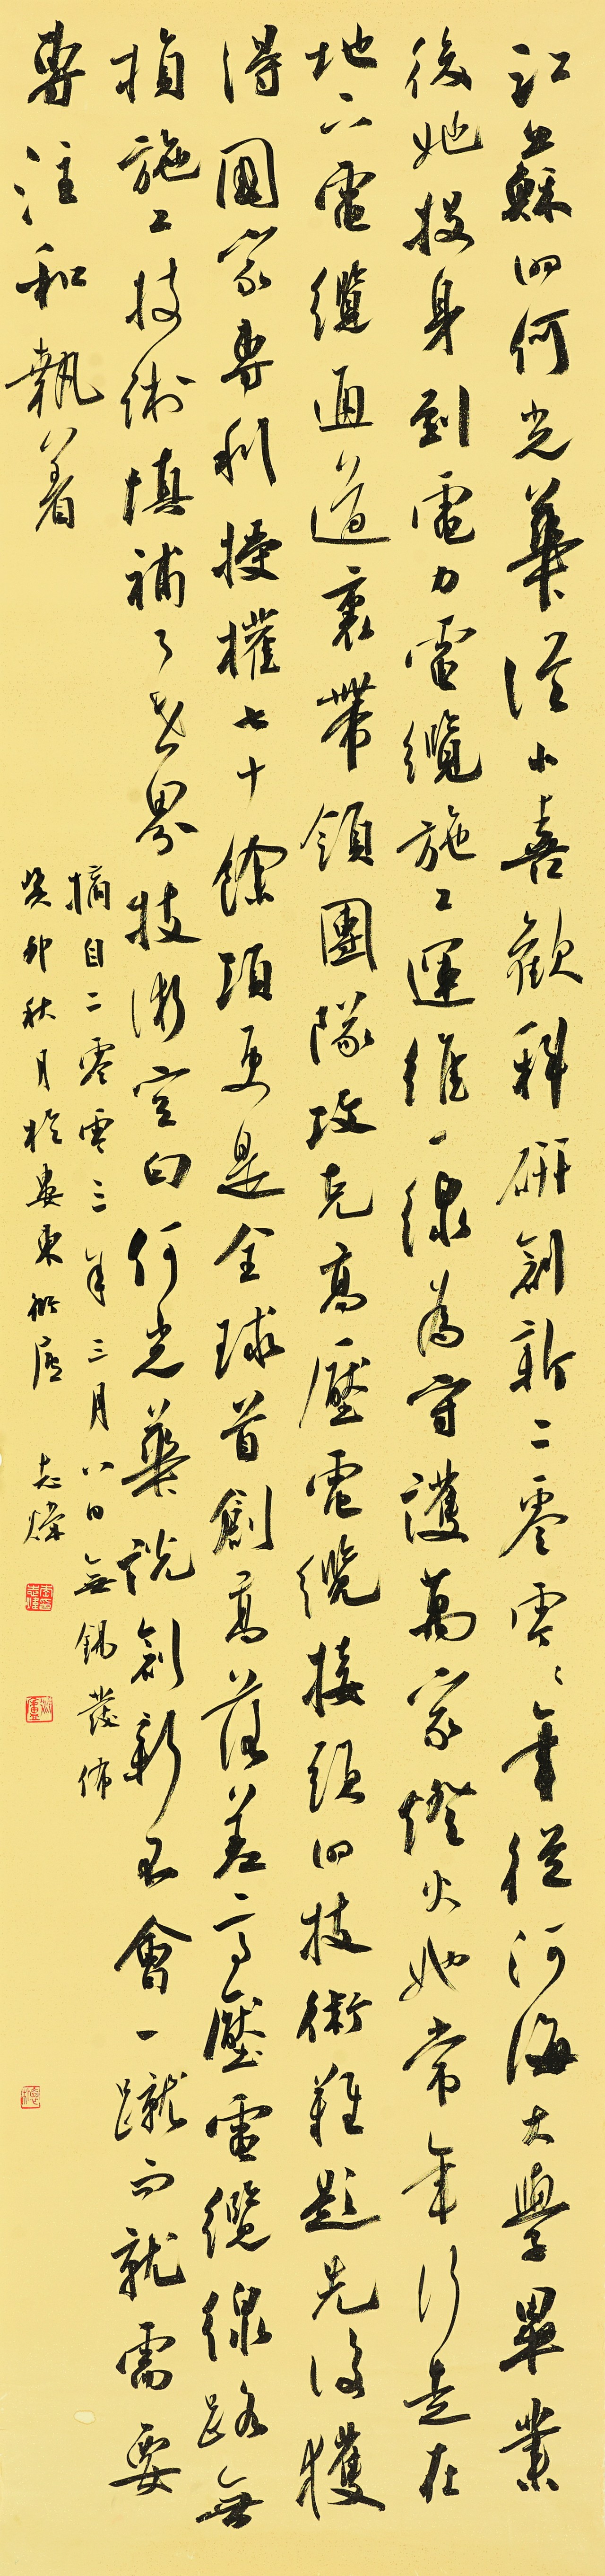 江蘇的何光華從小喜歡科研創新二零零零年從河海大學畢業
後她投身到電力電纜施工運維一線為守護萬家燈火她常年行走在
地下電纜通道裏帶領團隊攻克高壓電纜接頭的技術難題先後獲
得國家專利授權七十餘項更是全球首創高落差高壓電纜線路無
損施工技術填補了世界技術空白何光華說創新不會一蹴而就需要
專注和執着
摘自二零零三年三月八日無錫發佈
癸卯秋月於婁東 志燁